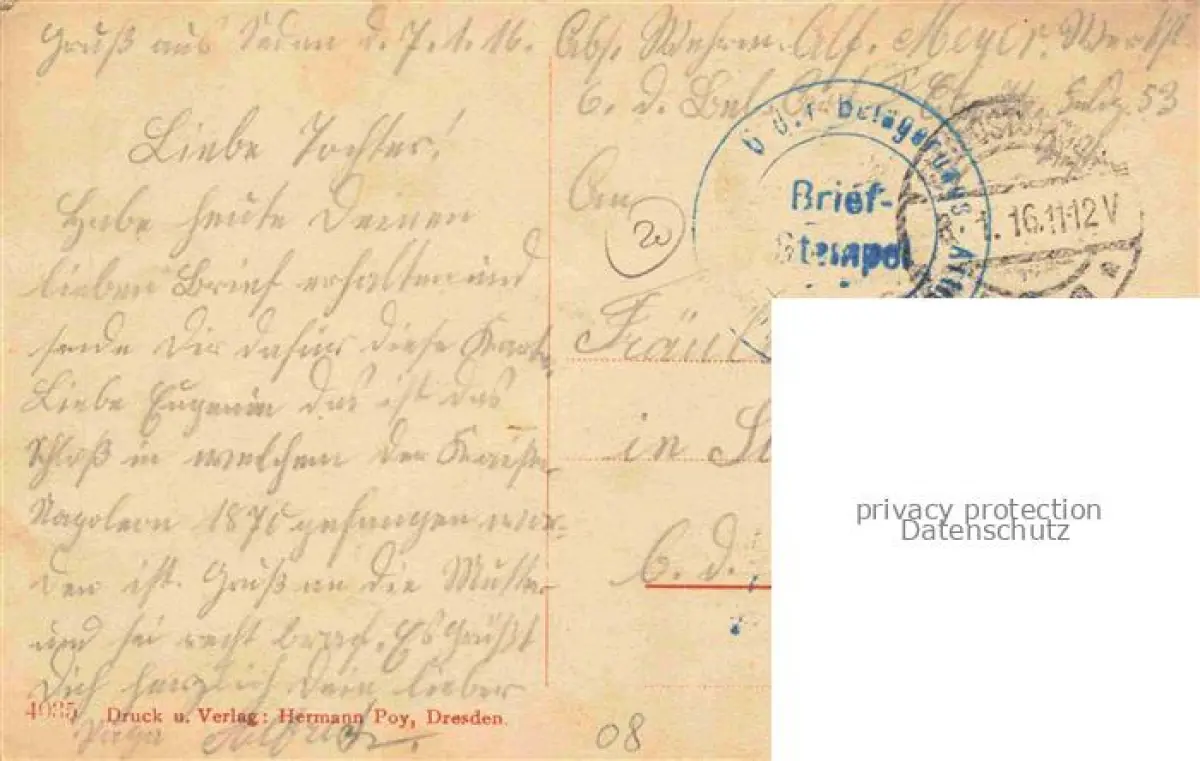 Gruß aus Sedan d. 7.1.16.
Liebe Tochter!
Habe heute Deinen
lieben Brief erhalten und
sende Dir dafür diese Karte.
Liebe Eugenie das ist das
Schloß in welchem der Kaiser
Napoleon 1870 gefangen wor-
den ist. Gruß an die Mutter
und sei recht brav. Es Grüßt
Dich herzlich Dein lieber
Papa
4035 Druck u. Verlag: Hermann Poy, Dresden.
Abs. Wehrm. Alf. Meyer.
6. d. 53
An
20
Belagerungs-
Brief-
Stempel
1.16.11-12V
Fräul
in
6. d.
08
privacy protection
Datenschutz